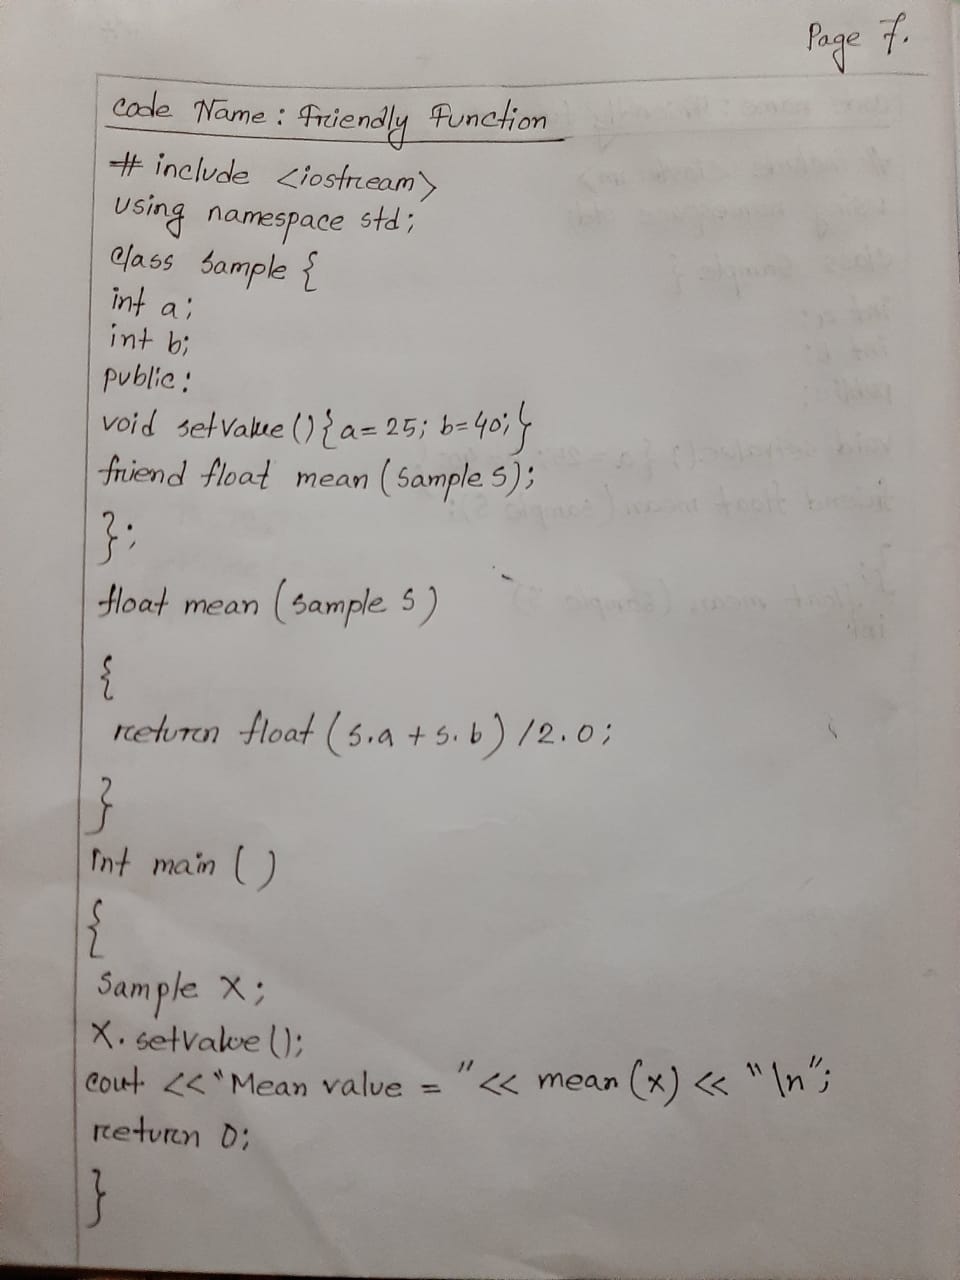 Page 7.
Code Name : Friendly Function
# include <iostream>
using namespace std;
class Sample {
int a;
int b;
public:
void setvalue () { a = 25; b = 40; }
friend float mean (Sample S);
};
float mean (Sample S)
{
return float (S.a + S.b) / 2.0;
}
int main ( )
{
Sample X;
X. setvalue ();
cout << "Mean value = " << mean (x) << "\n";
return 0;
}